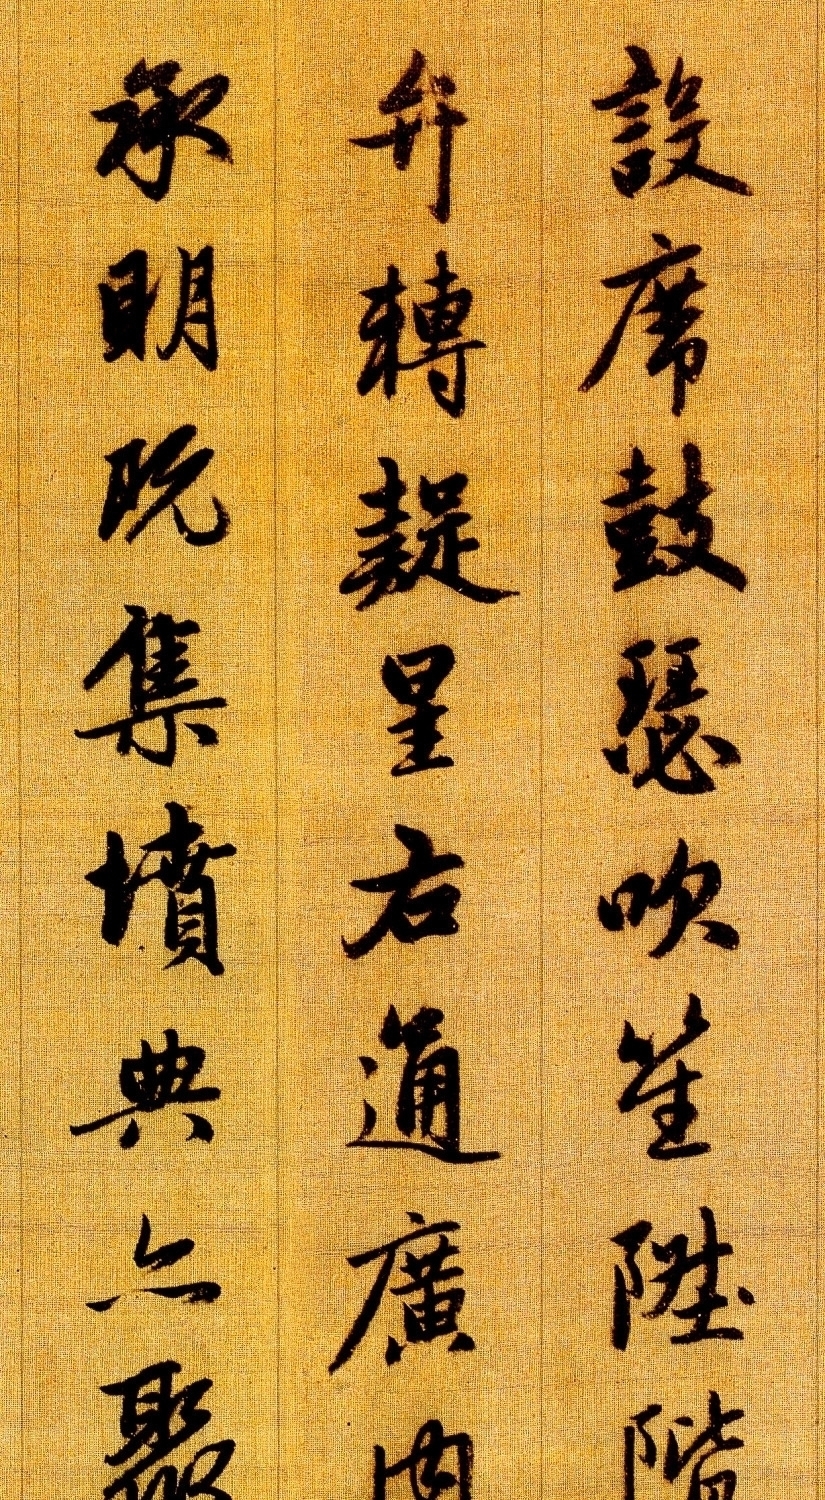 設席鼓瑟吹笙陞階
弁轉疑星右通廣内
承明既集墳典亦聚